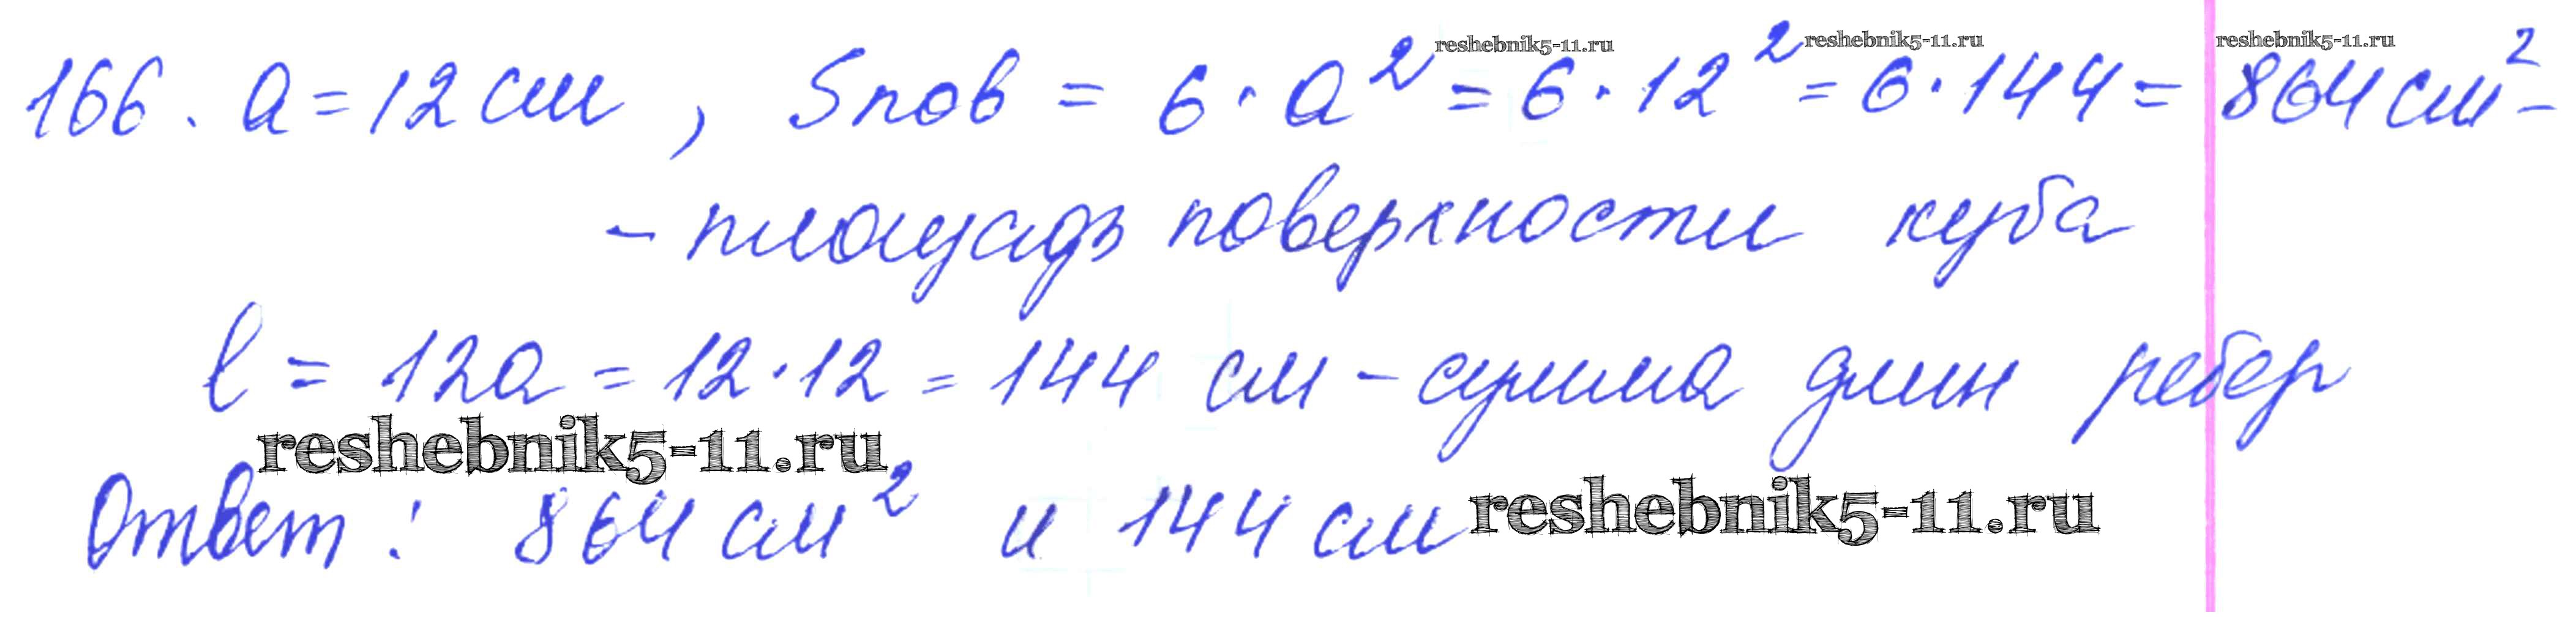 reshebnik5-11.ru reshebnik5-11.ru reshebnik5-11.ru
166. a = 12 см , Sпов = 6 · a² = 6 · 12² = 6 · 144 = 864 см² –
– площадь поверхности куба
l = 12a = 12 · 12 = 144 см – сумма длин ребер
reshebnik5-11.ru
Ответ: 864 см² и 144 см
reshebnik5-11.ru